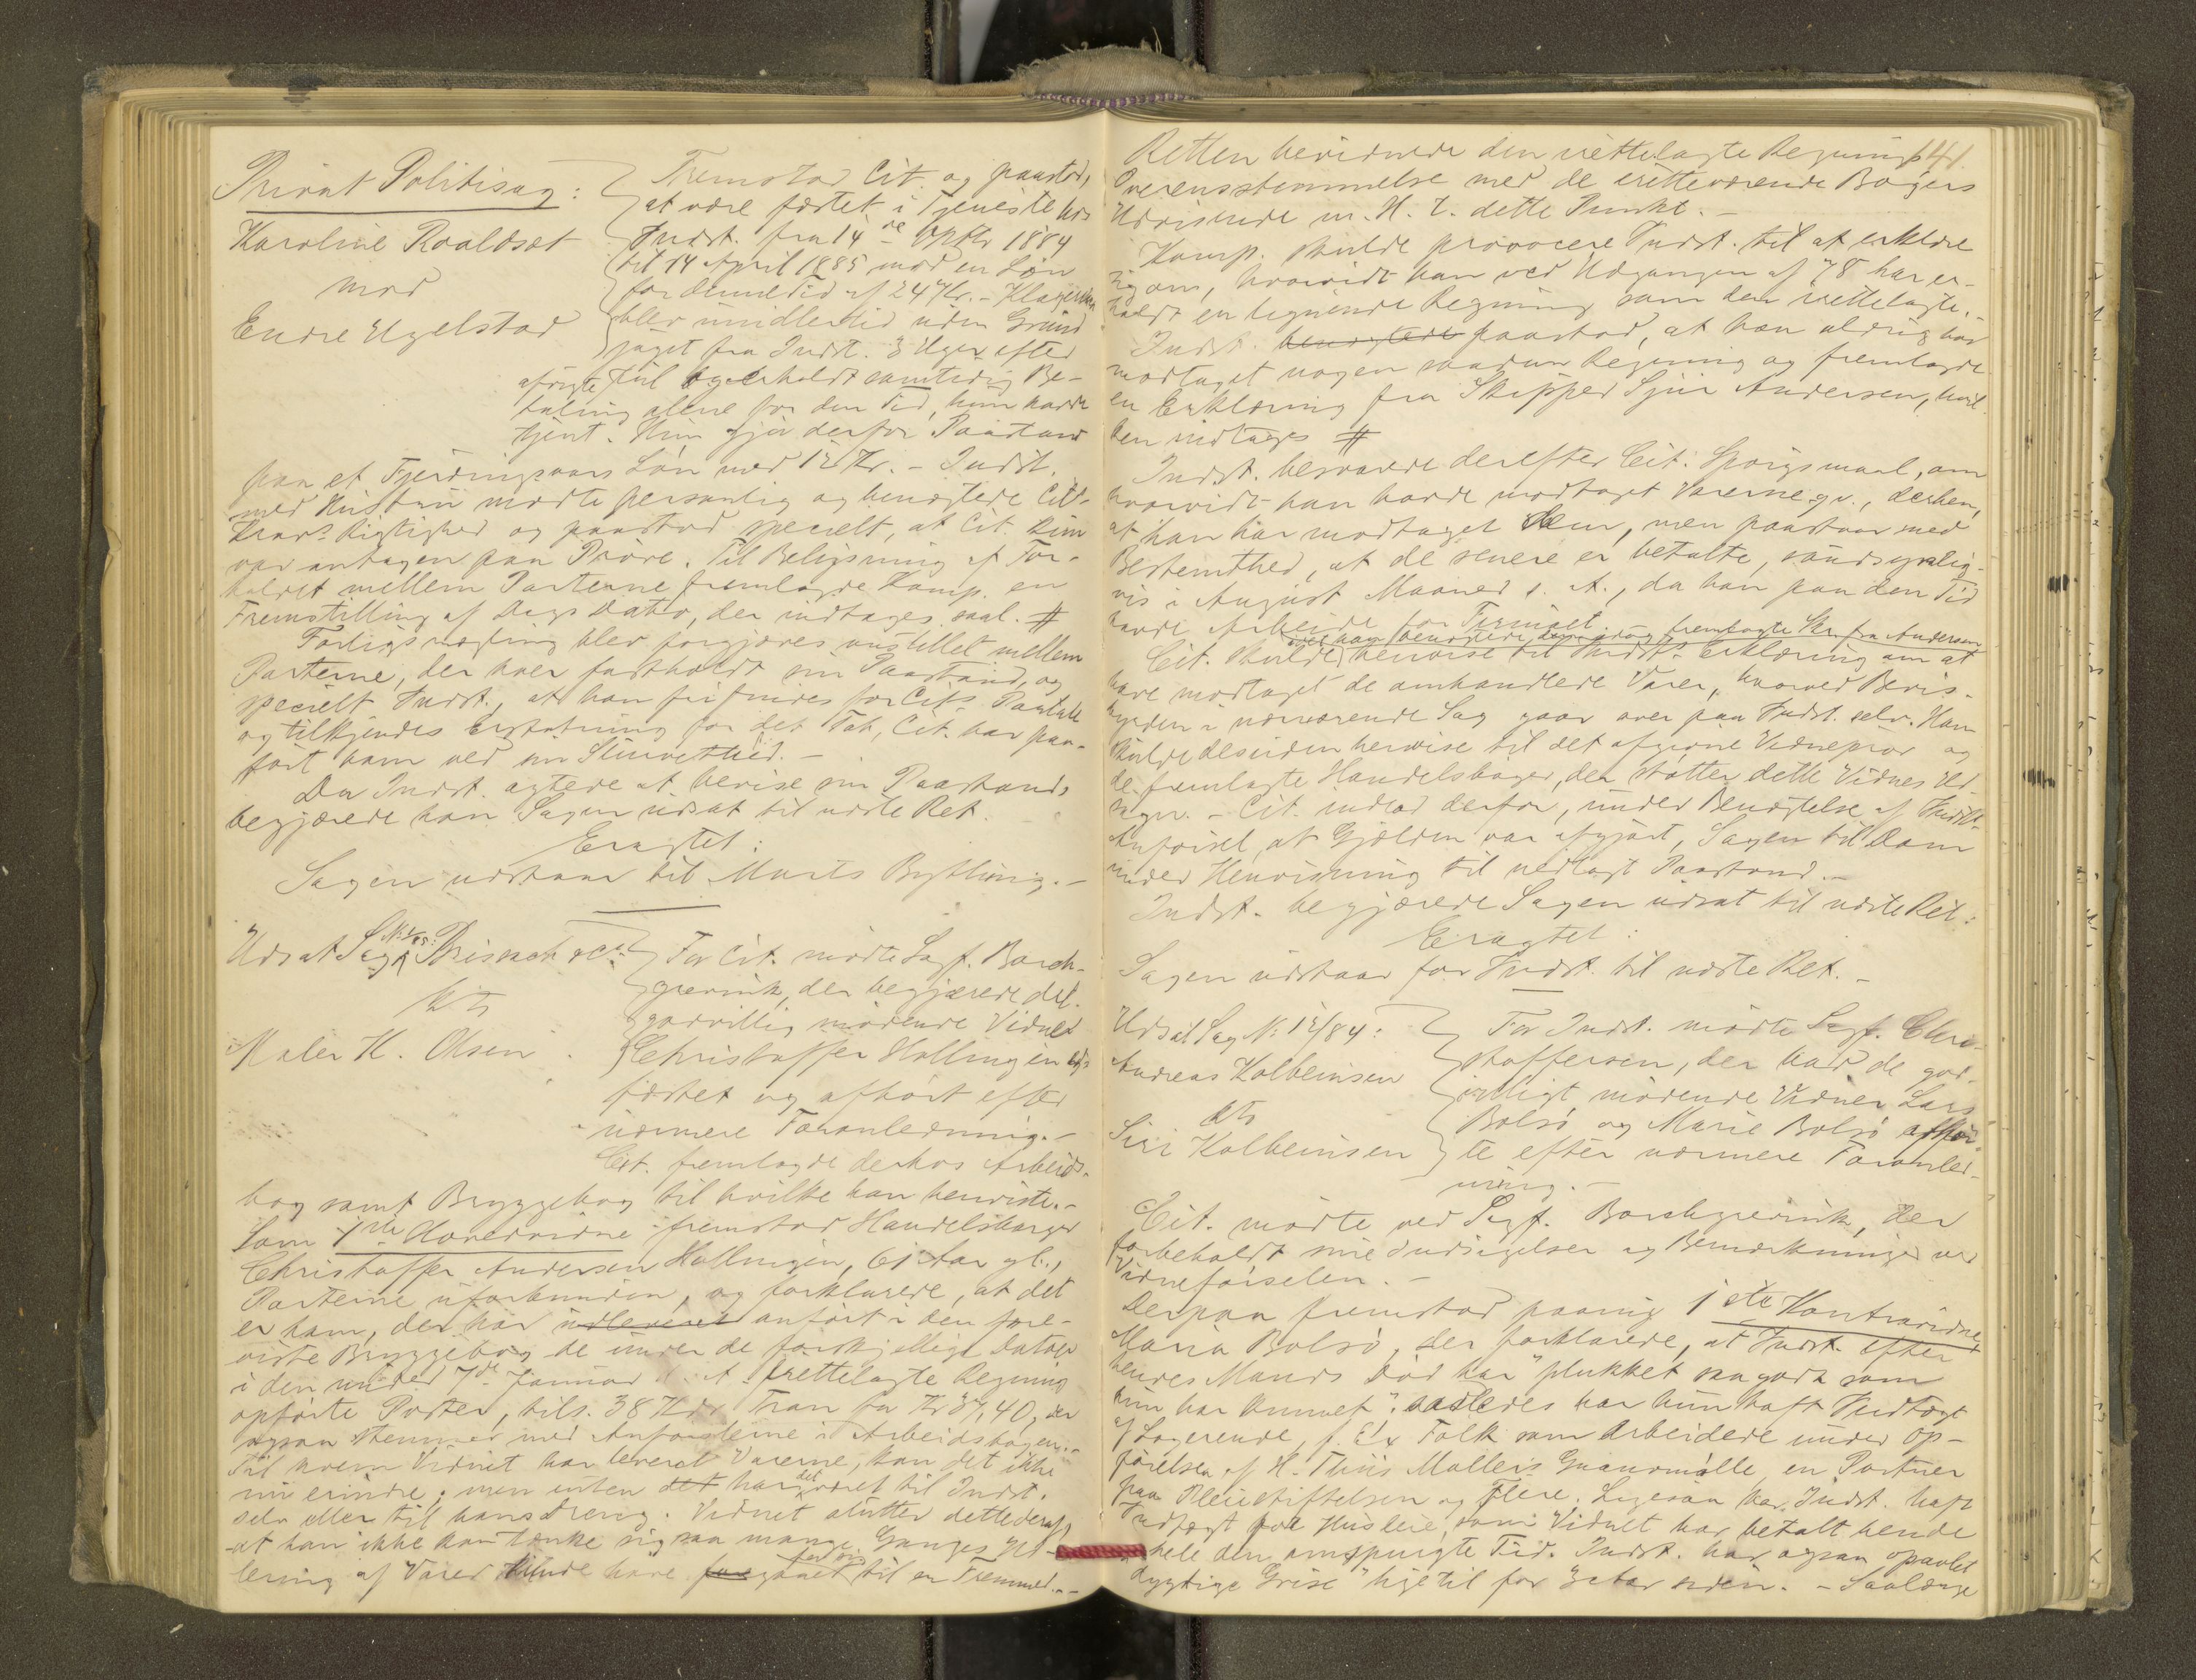 Privat Politisag:
Karoline Roaldsæt
mod
Endre Ugelstad
Fremstod Cit. og paastod,
at være fæstet i Tjeneste hos
Indst. fra 14de Oktbr 1884
til 14 April 1885 mod en Løn
for denne Tid af 24 Kr. - Klagerinden
blev imidlertid uden Grund
jaget fra Indst. 3 Uger efter
afvigte Jul og erholdt samtidig Be-
taling alene for den Tid, hun havde
tjent. Hun gjør derfor Paastand
paa et Fjerdingaars Løn med 12 Kr. - Indst.
med Hustru mødte personlig og benægtede Cit.s
Kravs Rigtighed og paastod specielt, at Cit. kun
var antagen paa Prøve. Til Belysning af For-
holdet mellem Parterne fremlagde Komp. en
Fremstilling af Dags Dato, der indtages saal. #
Forligsmægling blev forgjæves anstillet mellem
Parterne, der hver fastholdt sin Paastand, og
specielt Indst., at han frifindes for Cit.s Paatale
og tilkjendes Erstatning for det Tab, Cit. har paa-
ført ham ved sin
Da Indst. agtede at bevise sin Paastand,
begjærede han Sagen udsat til næste Ret.
Eragtet:
Sagen udstaar til Marts Bything. -
Udsat Sag No 4/85: Brisach & Co
cts
Maler K. Olsen
For Cit. mødte Sagf. Borch-
grevink, der begjærede det
godvillig mødende Vidne
Christoffer Hollingen ed-
fæstet og afhørt efter
nærmere Foranledning. -
Cit. fremlagde derhos Arbeids-
bog samt Bryggebog til hvilke han henviste. -
Som 1ste Hovedvidne fremstod Handelsborger
Christoffer Andersen Hollingen, 61 Aar gl.,
Parterne uforbunden, og forklarede, at det
er ham, der har udleveret anført i den fore-
viste Bryggebog de under de forskjellige Datoer
i den under 7de Januar d. A. irettelagte Regning
opførte Poster, tils. 38 Kdr Tran for Kr 37,40, der
ogsaa stemmer med Anførslerne i Arbeidsbogen. -
Til hvem Vidnet har leveret Varerne, kan det ikke
nu erindre; men enten det har det været til Indst.
selv eller til hans Dreng. Vidnet støtter dette derpaa,
at han ikke kan tænke sig saa mange Ganges Ud-
levering af Varer kunde have foregaaet til en Fremmed. -
141.
Retten bevidnede den irettelagte Regnings
Overensstemmelse med de iretteværende Bøgers
Udvisende m. H. t. dette Punkt. -
Komp. skulde provocere Indst. til at erklære
sig om, hvorvidt han ved Udgangen af 78 har er-
holdt en lignende Regning som den irettelagte. -
Indst. benægtede paastod, at han aldrig har
modtaget nogen saadan Regning og fremlagde
en Erklæring fra Skipper Sjur Andersen, hvil-
ken indtages #
Indst. besvarede derefter Cit. Spørgsmaal, om
hvorvidt han havde modtaget Varerne qv., derhen,
at han har modtaget dem, men paastaar med
Bestemthed, at de senere er betalte, sandsynlig-
vis i August Maaned s. A., da han paa den Tid
havde Arbeide for Firmaet.
Cit. skulde henvise til Indst.s Erklæring om at
have modtaget de omhandlede Varer, hvorved Bevis-
byrden i nærværende Sag gaar over paa Indst. selv. Han
skulde desuden henvise til det afgivne Vidneprov og
de fremlagte Handelsbøger, der støtter dette Vidnes Ud-
sagn. - Cit. indlod derfor, under Benægtelse af Indst.s
Anførsel, at Gjælden var afgjort, Sagen til Dom
under Henvisning til nedlagt Paastand. -
Indst. begjærede Sagen udsat til næste Ret:
Eragtet:
Sagen udstaar for Indst. til næste Ret. -
Udsat Sag No 12/84:
Andreas Kolbeinsen
cts
Siri Kolbeinsen
For Indst. mødte Sagf. Chri-
stoffersen, der bad de god-
villigt mødende Vidner Lars
Bolsø og Marie Bolsø afhør-
te efter nærmere Foranled-
ning. -
Cit. mødte ved Sagf. Borchgrevink, der
forbeholdt sine Indsigelser og Bemærkninger ved
Vidneførselen. -
Derpaa fremstod paany 1ste Kontravidne
Maria Bolsø, der forklarede, at Indst. efter
hendes Mands Død har "plukket saa godt som
hun har kunnet"; saaledes har hun havt Indtægt
af Logerende, f. Ex Folk som arbeidede under Op-
førelsen af H. Thiis Møllers Guanomølle, en Portner
paa Pleiestiftelsen og Flere. Ligesaa har Indst. havt
Indtægt for Husleie, som Vidnet har betalt hende
hele den omspurgte Tid. Indst. har ogsaa opavlet
"dygtige Grise" lige til for 3 Aar siden. - Saalænge